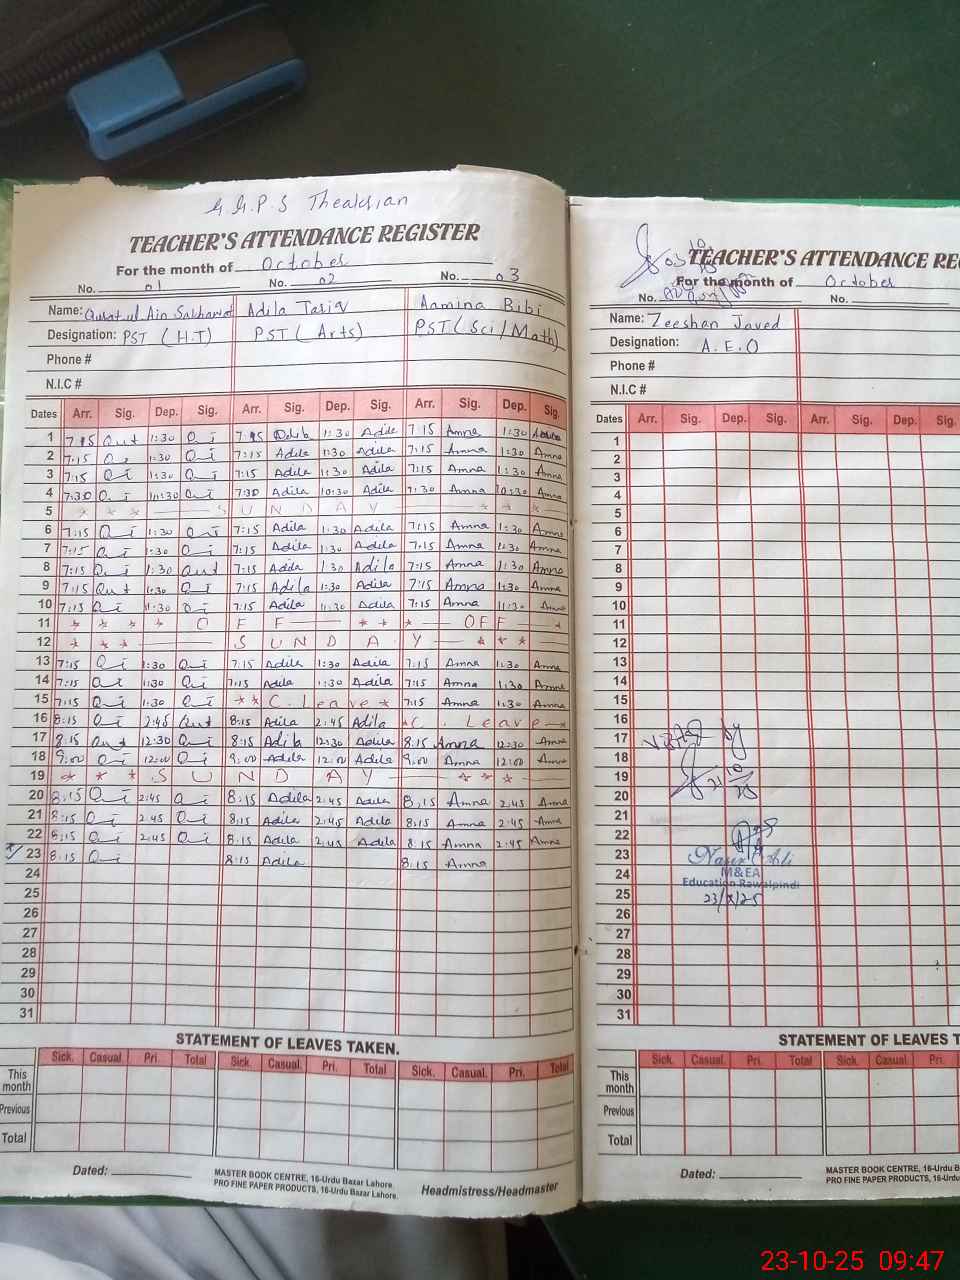 G.G.P.S Thealsian
TEACHER'S ATTENDANCE REGISTER
For the month of October
No. 01 No. 02 No. 03
Name: Quratul Ain Sakhawat Adila Tariq Aamina Bibi
Designation: PST (H.T) PST (Arts) PST (Sci/Math)
Phone #
N.I.C #
Dates Arr. Sig. Dep. Sig. Arr. Sig. Dep. Sig. Arr. Sig. Dep. Sig.
1 7:15 Qut 1:30 Qi 7:15 Adila 1:30 Adila 7:15 Amna 1:30
2 7:15 Qi 1:30 Qi 7:15 Adila 1:30 Adila 7:15 Amna 1:30 Amna
3 7:15 Qi 1:30 Qi 7:15 Adila 1:30 Adila 7:15 Amna 1:30 Amna
4 7:30 Qi 10:30 Qi 7:30 Adila 10:30 Adila 7:30 Amna 10:30 Amna
5 * * * SUNDAY * * *
6 7:15 Qi 1:30 Qi 7:15 Adila 1:30 Adila 7:15 Amna 1:30 Amna
7 7:15 Qi 1:30 Qi 7:15 Adila 1:30 Adila 7:15 Amna 1:30 Amna
8 7:15 Qi 1:30 Qut 7:15 Adila 1:30 Adila 7:15 Amna 1:30 Amna
9 7:15 Qut 1:30 Qi 7:15 Adila 1:30 Adila 7:15 Amna 1:30 Amna
10 7:15 Qi 11:30 Qi 7:15 Adila 11:30 Adila 7:15 Amna 11:30 Amna
11 * * * * OFF * * * OFF *
12 * * * SUNDAY * * *
13 7:15 Qi 1:30 Qi 7:15 Adila 1:30 Adila 7:15 Amna 1:30 Amna
14 7:15 Qi 1:30 Qi 7:15 Adila 1:30 Adila 7:15 Amna 1:30 Amna
15 7:15 Qi 1:30 Qi * * C. Leave * 7:15 Amna 1:30 Amna
16 8:15 Qi 2:45 Qut 8:15 Adila 2:45 Adila * C. Leave *
17 8:15 Qut 12:30 Qi 8:15 Adila 12:30 Adila 8:15 Amna 12:30 Amna
18 9:00 Qi 12:00 Qi 9:00 Adila 12:00 Adila 9:00 Amna 12:00 Amna
19 * * * SUNDAY * * *
20 8:15 Qi 2:45 Qi 8:15 Adila 2:45 Adila 8:15 Amna 2:45 Amna
21 8:15 Qi 2:45 Qi 8:15 Adila 2:45 Adila 8:15 Amna 2:45 Amna
22 8:15 Qi 2:45 Qi 8:15 Adila 2:45 Adila 8:15 Amna 2:45 Amna
23 8:15 Qi 8:15 Adila 8:15 Amna
24
25
26
27
28
29
30
31
STATEMENT OF LEAVES TAKEN.
Sick. Casual. Pri. Total Sick. Casual. Pri. Total Sick. Casual. Pri. Total
This month
Previous
Total
Dated:
MASTER BOOK CENTRE, 16-Urdu Bazar Lahore.
PRO FINE PAPER PRODUCTS, 16-Urdu Bazar Lahore.
Headmistress/Headmaster
TEACHER'S ATTENDANCE RE
For the month of October
No. No.
Name: Zeeshan Javed
Designation: A.E.O
Phone #
N.I.C #
Dates Arr. Sig. Dep. Sig. Arr. Sig. Dep. Sig.
1
2
3
4
5
6
7
8
9
10
11
12
13
14
15
16
17
18
19
20
21
22
23
24
25
26
27
28
29
30
31
Visited by
21/10/25
Nasir Ali
M&EA
Education Rawalpindi
23/X/25
STATEMENT OF LEAVES T
Sick. Casual. Pri. Total Sick. Casual. Pri.
This month
Previous
Total
Dated:
MASTER BOOK CENTRE, 16-Urdu B
PRO FINE PAPER PRODUCTS, 16-Urdu
23-10-25 09:47